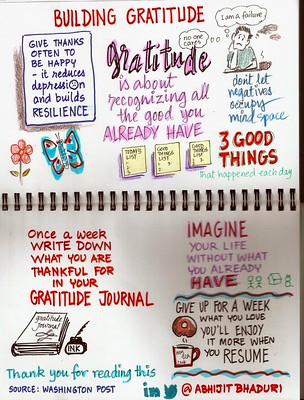 BUILDING GRATITUDE
GIVE THANKS
OFTEN TO
BE HAPPY
- it reduces
depression
and builds
RESILIENCE
no one
cares
I am a failure
Gratitude
is about
recognizing all
the good you
ALREADY HAVE
dont let
negatives
occupy
mind space
TODAY'S
LIST
1.
2.
3.
GOOD
THINGS
LIST
GOOD
THINGS
LIST
3 GOOD
THINGS
that happened each day
Once a week
WRITE DOWN
WHAT YOU ARE
THANKFUL FOR
IN YOUR
GRATITUDE JOURNAL
gratitude
Journal
INK
IMAGINE
YOUR LIFE
WITHOUT WHAT
YOU ALREADY
HAVE
GIVE UP FOR A WEEK
WHAT YOU LOVE
YOU'LL ENJOY
IT MORE WHEN
YOU RESUME
Thank you for reading this
SOURCE: WASHINGTON POST
in
@ABHIJITBHADURI